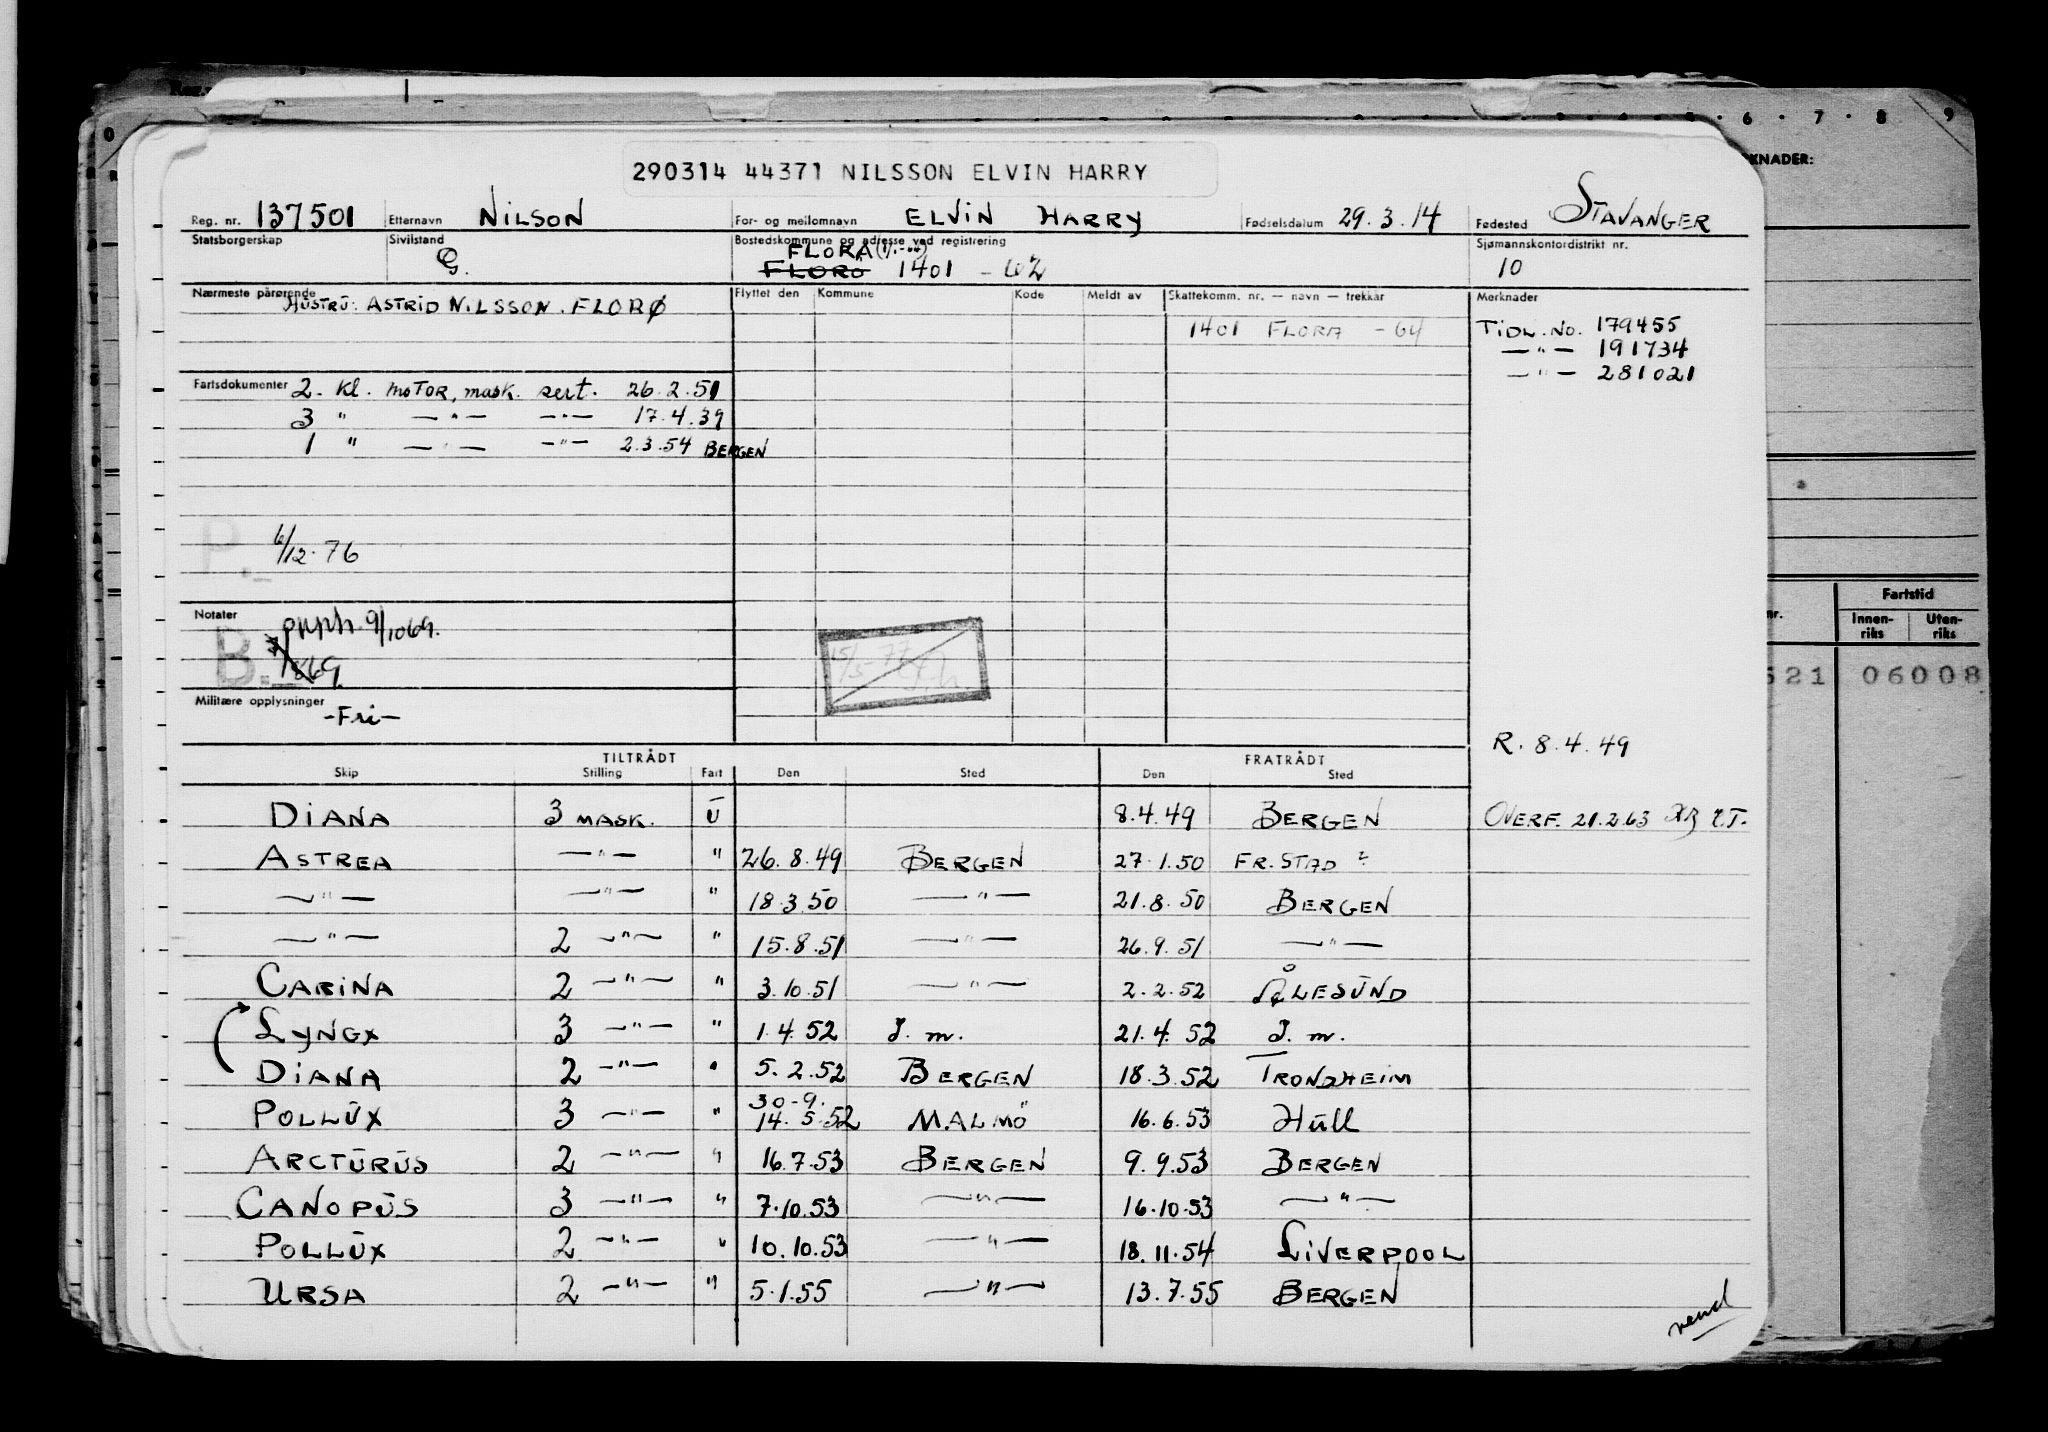 0 6 · 7 · 8 9
KNADER:
290314 44371 NILSSON ELVIN HARRY
Reg. nr. 137501 Etternavn NILSON For- og mellomnavn ELVIN HARRY Fødselsdatum 29.3.14 Fødested STAVANGER
Statsborgerskap Sivilstand G. Bostedskommune og adresse ved registrering Sjømannskontordistrikt nr.
FLORA (1/1-64)
FLORØ 1401 - 62 10
Nærmeste pårørende Flyttet den Kommune Kode Meldt av Skattekomm. nr. — navn — trekkår Merknader
HUSTRU: ASTRID NILSSON. FLORØ
1401 FLORA - 64 TIDL. NO. 179455
—"— 191734
—"— 281021
Fartsdokumenter 2. Kl. MOTOR, mask. sert. 26.2.51
3 " —"— —"— 17.4.39
1 " —"— —"— 2.3.54 BERGEN
P. 6/12.76
Fartstid
Innen-riks Uten-riks
nr.
621 06008
Notater
B. 9/1069.
869.
15/5-77
Militære opplysninger
-Fri-
R. 8.4.49
TILTRÅDT FRATRÅDT
Skip Stilling Fart Den Sted Den Sted
DIANA 3 MASK. U 8.4.49 BERGEN OVERF. 21.2.63
ASTREA —"— " 26.8.49 BERGEN 27.1.50 FR.STAD ?
—"— —"— " 18.3.50 —"— 21.8.50 BERGEN
—"— 2 —"— " 15.8.51 —"— 26.9.51 —"—
CARINA 2 —"— " 3.10.51 —"— 2.2.52 ÅLESUND
LYNGX 3 —"— " 1.4.52 I. m. 21.4.52 I. m.
DIANA 2 —"— " 5.2.52 BERGEN 18.3.52 TRONDHEIM
30-9.
POLLUX 3 —"— " 14.5.52 MALMÖ 16.6.53 Hull
ARCTURUS 2 —"— " 16.7.53 BERGEN 9.9.53 BERGEN
CANOPUS 3 —"— " 7.10.53 —"— 16.10.53 —"—
POLLUX 2 —"— " 10.10.53 —"— 18.11.54 LIVERPOOL
URSA 2 —"— " 5.1.55 —"— 13.7.55 BERGEN
vend